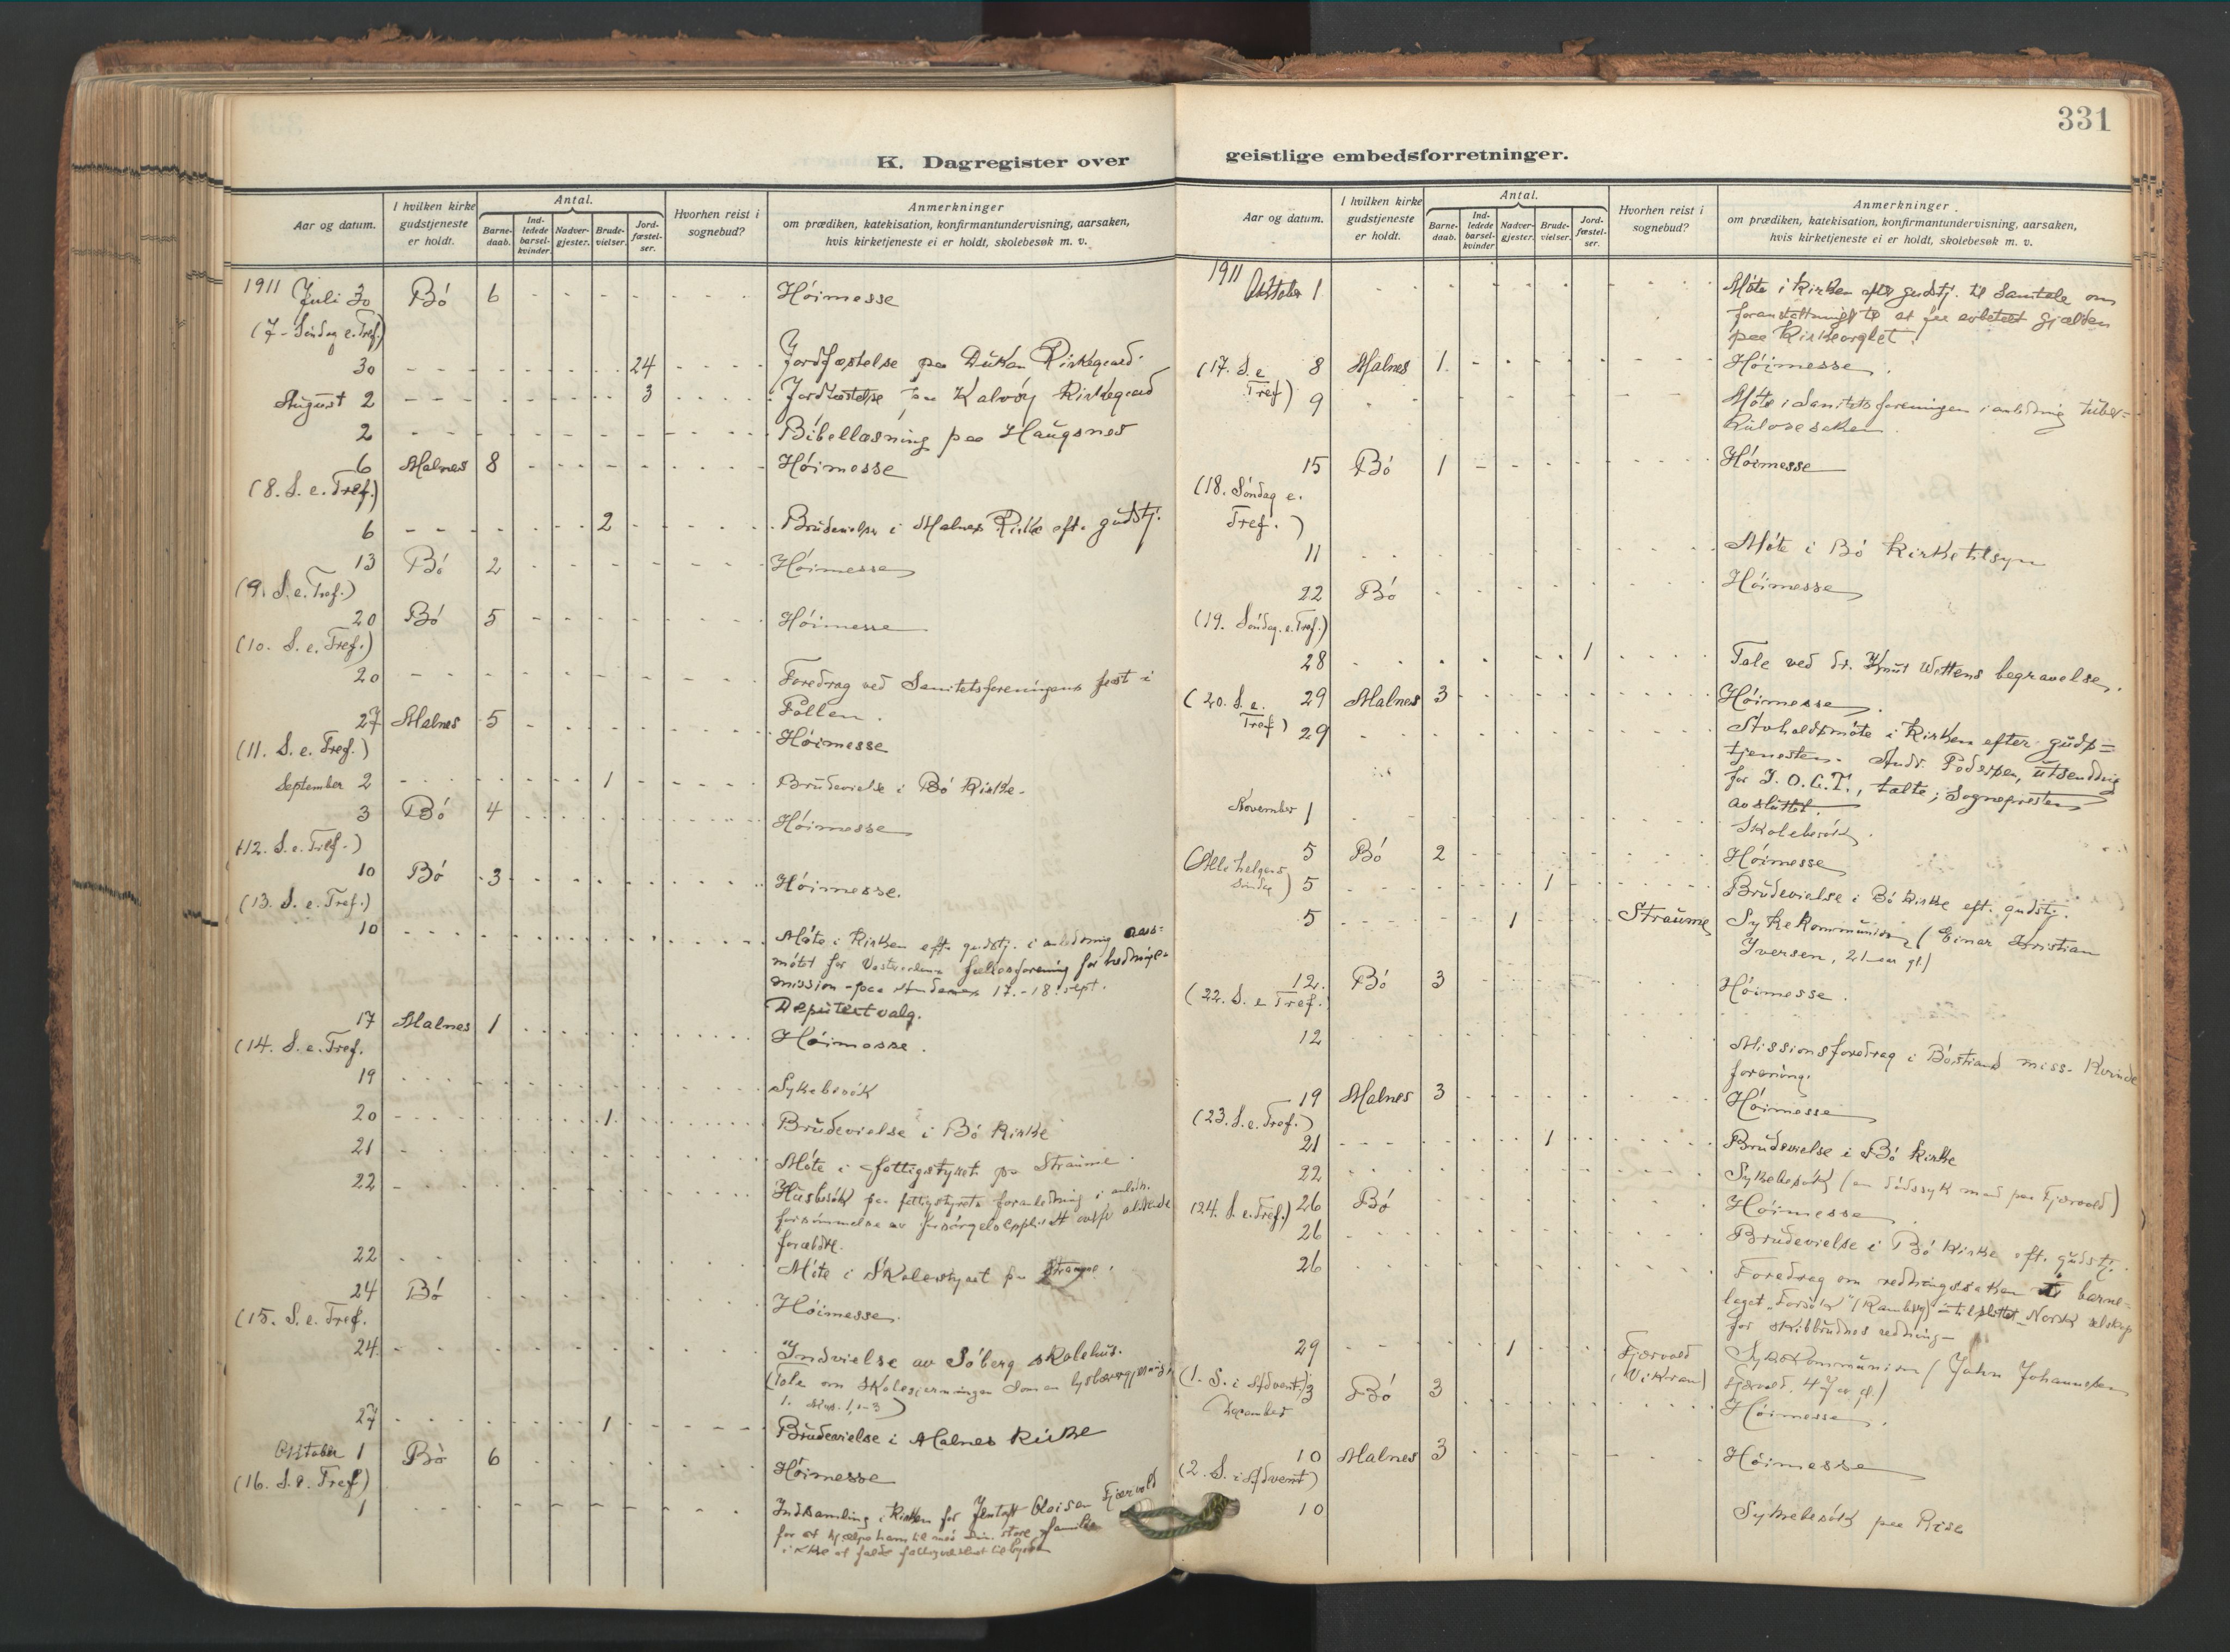 331
K. Dagregister over
geistlige embedsforretninger.
Aar og datum.
I hvilken kirke gudstjeneste er holdt.
Antal.
Barnedaab.
Indledede barselkvinder.
Nadvergjester.
Brudevielser.
Jordfæstelser.
Hvorhen reist i sognebud?
Anmerkninger
om prædiken, katekisation, konfirmantundervisning, aarsaken,
hvis kirketjeneste ei er holdt, skolebesøk m. v.
1911 Juli 30 Bö 6 Höimesse
(7. Söndag e. Tref.)
30 24 Jordfæstelse paa Kirkegaard
August 2 3 Jordfæstelse paa Kalvöy Kirkegaard
2 Bibellæsning paa Haugsnes
6 Malnes 8 Höimesse
(8. S. e. Tref.)
6 2 Brudevielse i Malnes Kirke eft. gudstj.
13 Bö 2 Höimesse
(9. S. e. Tref.)
20 Bö 5 Höimesse
(10. S. e. Tref.)
20 Foredrag ved Sanitetsforeningens fest i
Pollen.
27 Malnes 5 Höimesse
(11. S. e. Tref.)
September 2 1 Brudevielse i Bö Kirke.
3 Bö 4 Höimesse
(12. S. e. Tref.)
10 Bö 3 Höimesse.
(13. S. e. Tref.)
10 Möte i Kirken eft. gudstj. i anledning aars=
mötet for fællesforening for hedninge=
mission - paa 17.-18. sept.
Deputertvalg.
17 Malnes 1 Höimesse.
(14. S. e. Tref.
19 Sykebesök
20 1 Brudevielse i Bö Kirke
21 Möte i fattigstyret paa Straume.
22 Husbesök paa fattigstyrets foranledning i anledn.
forsömmelse av
forældre.
22 Möte i Skolestyret paa Straume.
24 Bö Höimesse.
(15. S. e. Tref.
24 Indvielse av Söberg skolehus.
(Tale om skolegjerningen som en
1. Mos. 1, 1-3)
27 1 Brudevielse i Malnes Kirke
Oktober 1 Bö 6 Höimesse
(16. S. e. Tref)
1 Indsamling i Kirken for Olaisen Fjærvold
for at hjælpe ham til med sin store familie
ikke at falde til byrde
Aar og datum.
I hvilken kirke gudstjeneste er holdt.
Antal.
Barnedaab.
Indledede barselkvinder
Nadvergjester.
Brudevielser.
Jordfæstelser.
Hvorhen reist i sognebud?
Anmerkninger
om prædiken, katekisation, konfirmantundervisning, aarsaken,
hvis kirketjeneste ei er holdt, skolebesøk m. v.
1911 Oktober 1 Möte i Kirken efter gudstj. til samtale om
foranstaltninger til at faa avbetalt gjælden
paa Kirkeorglet.
(17. S. e. Tref) 8 Malnes 1. Höimesse.
9 Möte i Sanitetsforeningen i anledning tuber=
kulosesaken.
15 Bö 1 Höimesse
(18. Söndag e.
Tref.)
11 Möte i Bö Kirketilsyn
22 Bö Höimesse
(19. Söndag e. Tref.)
28 1 Tale ved dr. Knut Wettens begravelse.
(20. S. e. Tref) 29 Malnes 3 Höimesse.
29 Avholdsmöte i Kirken efter guds=
tjenesten. Andr. Pedersen, utsending
for I. O. G. T., talte; Sognepresten
avsluttet.
November 1 Skolebesök.
5 Bö 2 Höimesse
(Alle helgens söndag) 5 1 Brudevielse i Bö Kirke eft. gudstj.
5 1 Straume Sykekommunion (Einar Kristian
Iversen, 21 aar gl.)
12. Bö 3 Höimesse.
(22. S. e Tref.)
12 Missionsforedrag i Böstrand miss. Kvinde
forening.
19 Malnes 3 Höimesse
(23. S. e. Tref.)
21 1 Brudevielse i Bö Kirke
22 Sykebesök (en dödssyk mand paa Fjærvold)
(24. S. e. Tref.) 26 Bö Höimesse.
26 Brudevielse i Bö Kirke eft. gudstj.
26 Foredrag om redningssaken barne=
laget Norsk selskap
for skibbrudnes redning
29 1 Fjærvold Sykekommunion (Johan Johannesen
(Vikran) Fjærvold. 47 aar gl.)
(1. S. i Advent) 3 Bö 3 Höimesse.
December
10 Malnes 3 Höimesse
(2. S. i Advent)
10 Sykebesök paa Rise